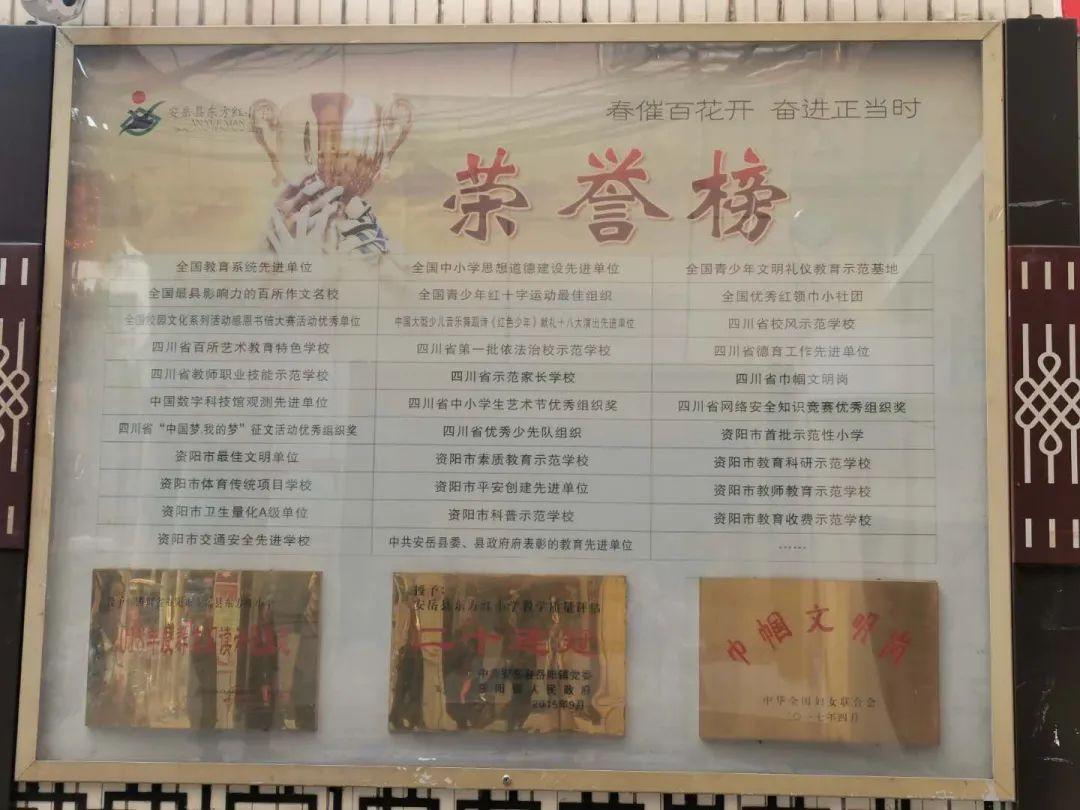 安岳县东方红小学
春催百花开 奋进正当时
荣誉榜
全国教育系统先进单位 全国中小学思想道德建设先进单位 全国青少年文明礼仪教育示范基地
全国最具影响力的百所作文名校 全国青少年红十字运动最佳组织 全国优秀红领巾小社团
全国校园文化系列活动感恩书信大赛活动优秀单位 中国大型少儿音乐舞蹈诗《红色少年》献礼十八大演出先进单位 四川省校风示范学校
四川省百所艺术教育特色学校 四川省第一批依法治校示范学校 四川省德育工作先进单位
四川省教师职业技能示范学校 四川省示范家长学校 四川省巾帼文明岗
中国数字科技馆观测先进单位 四川省中小学生艺术节优秀组织奖 四川省网络安全知识竞赛优秀组织奖
四川省“中国梦,我的梦”征文活动优秀组织奖 四川省优秀少先队组织 资阳市首批示范性小学
资阳市最佳文明单位 资阳市素质教育示范学校 资阳市教育科研示范学校
资阳市体育传统项目学校 资阳市平安创建先进单位 资阳市教师教育示范学校
资阳市卫生量化A级单位 资阳市科普示范学校 资阳市教育收费示范学校
资阳市交通安全先进学校 中共安岳县委、县政府府表彰的教育先进单位 ……
授予:
安岳县东方红小学教学质量评估
中共安岳县岳阳镇党委
岳阳镇人民政府
2015年9月
巾帼文明岗
中华全国妇女联合会
二〇一七年四月